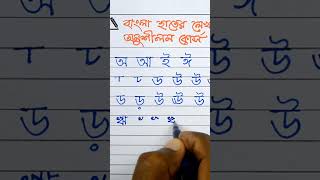 বাংলা হাতের লেখা
অনুশীলন কোর্স
অ আ ই ঈ
ড উ উ
ড ড় উ উ উ
ঋ